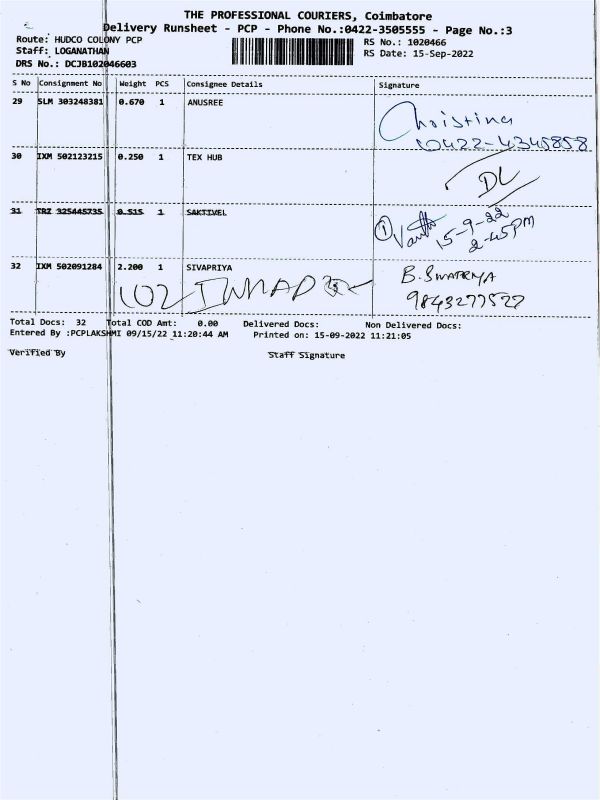 THE PROFESSIONAL COURIERS, Coimbatore
Delivery Runsheet - PCP - Phone No.:0422-3505555 - Page No.:3
Route: HUDCO COLONY PCP
RS No.: 1020466
Staff: LOGANATHAN
RS Date: 15-Sep-2022
DRS No.: DCJB102046603
S No Consignment No Weight PCS Consignee Details Signature
29 SLM 303248381 0.670 1 ANUSREE
Christina
0422-4345858
30 IXM 502123215 0.250 1 TEX HUB
DL
31 TRZ 325445735 0.515 1 SAKTIVEL
15-9-22
2-45PM
32 IXM 502091284 2.200 1 SIVAPRIYA
9843277522
Total Docs: 32 Total COD Amt: 0.00 Delivered Docs: Non Delivered Docs:
Entered By :PCPLAKSHMI 09/15/22 11:20:44 AM Printed on: 15-09-2022 11:21:05
Verified By Staff Signature